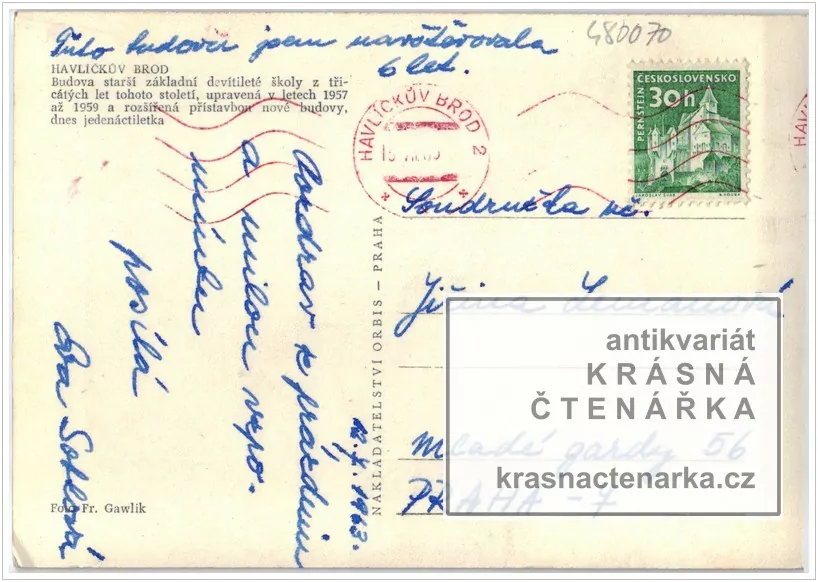 Tuto budovu jsem navštěvovala
6 let.
480070
HAVLÍČKŮV BROD
Budova starší základní devítileté školy z tři-
cátých let tohoto století, upravená v letech 1957
až 1959 a rozšířená přístavbou nové budovy,
dnes jedenáctiletka
HAVLÍČKŮV BROD 2
ČESKOSLOVENSKO
30h
PERNŠTEJN
JAROSLAV ŠVÁB
Pozdrav k prázdni
a milou vzpo-
mínku
posílá
Eva
12.7.1963.
NAKLADATELSTVÍ ORBIS – PRAHA
Soudružka
Jiřina Lemanová
Mladé gardy 56
PRAHA - 7
antikvariát
KRÁSNÁ
ČTENÁŘKA
krasnactenarka.cz
Foto Fr. Gawlik
HAV